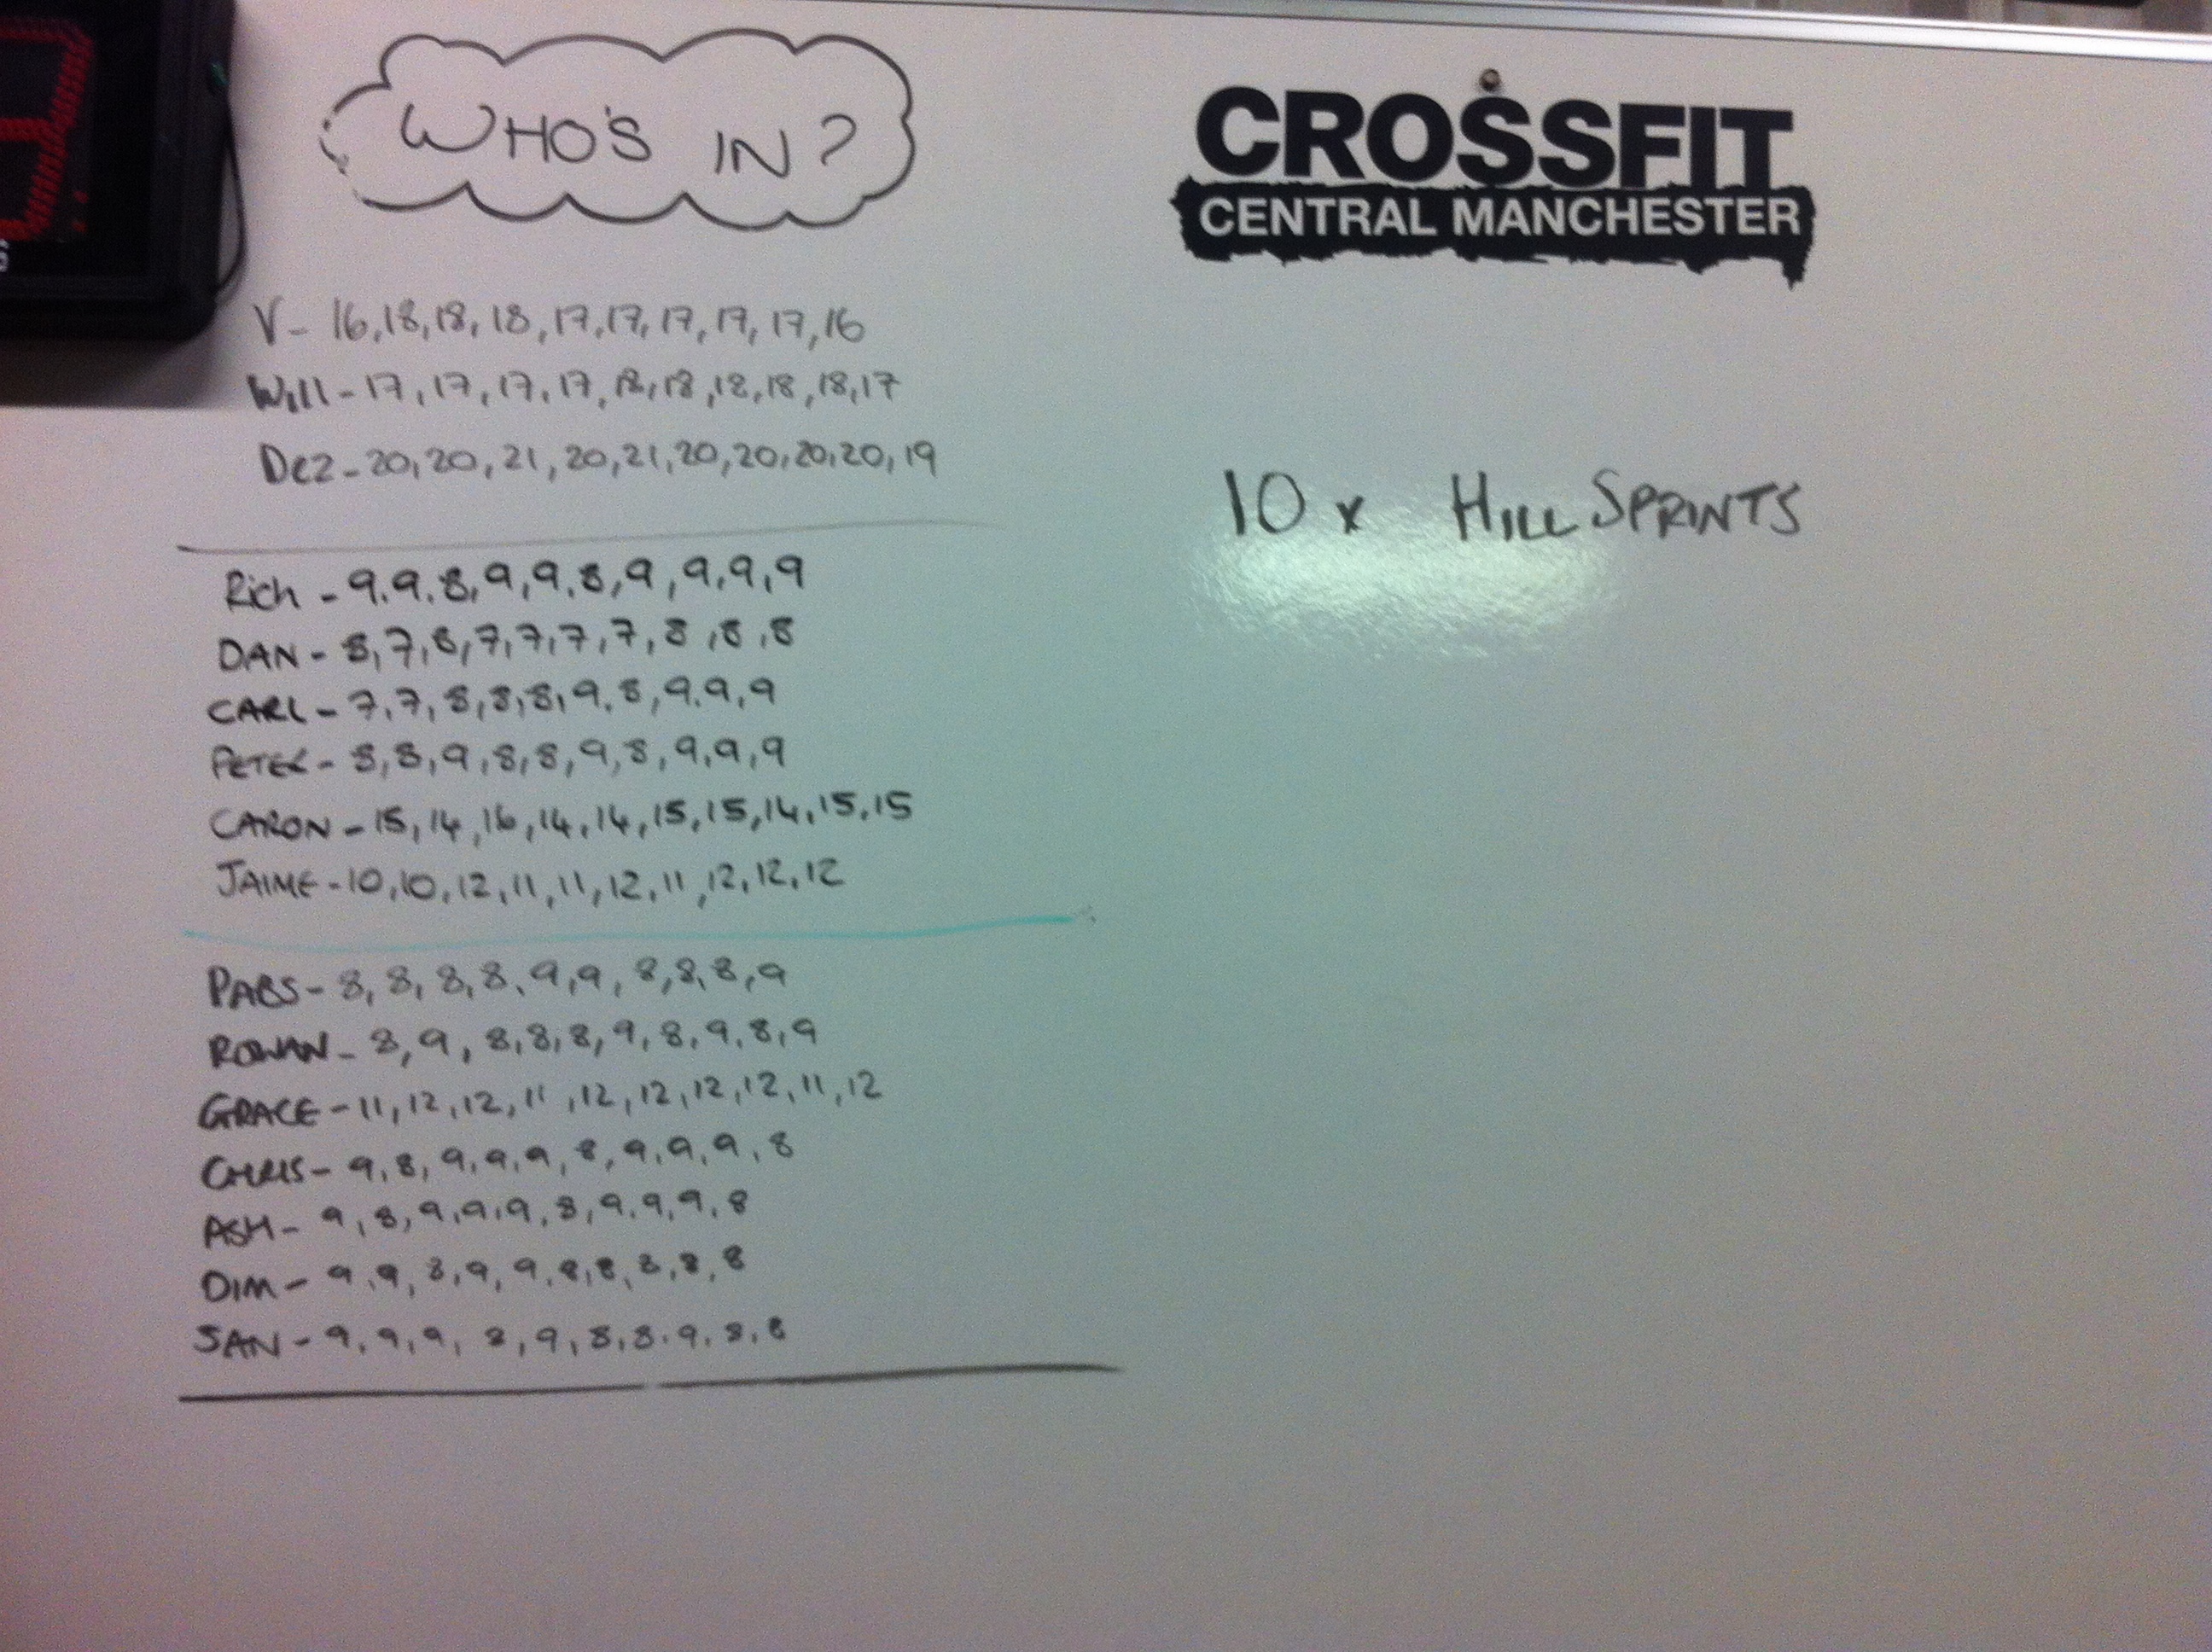 WHO'S IN?
CROSSFIT
CENTRAL MANCHESTER
V - 16,18,18,18,17,17,17,17,17,16
Will - 17,17,17,17,18,18,18,18,18,17
Dez - 20,20,21,20,21,20,20,20,20,19
10 x HILL SPRINTS
Rich - 9.9.8,9,9.8,9,9,9,9
DAN - 8,7,8,7,7,7,7,8,8,8
CARL - 7.7,8,8,8,9.8,9.9,9
PETER - 8,8,9,8,8,9,8,9,9,9
CARON - 15,14,16,14,14,15,15,14,15,15
JAIME - 10,10,12,11,11,12,11,12,12,12
PABS - 8,8,8,8,9,9,8,8,8,9
ROWAN - 8,9,8,8,8,9,8,9,8,9
GRACE - 11,12,12,11,12,12,12,12,11,12
CHRIS - 9,8,9,9,9,8,9,9,9,8
ASH - 9,8,9,9,9,8,9,9,9,8
DIM - 9.9,8,9,9,8,8,8,8,8
SAN - 9,9,9,8,9,8,8.9,8,8